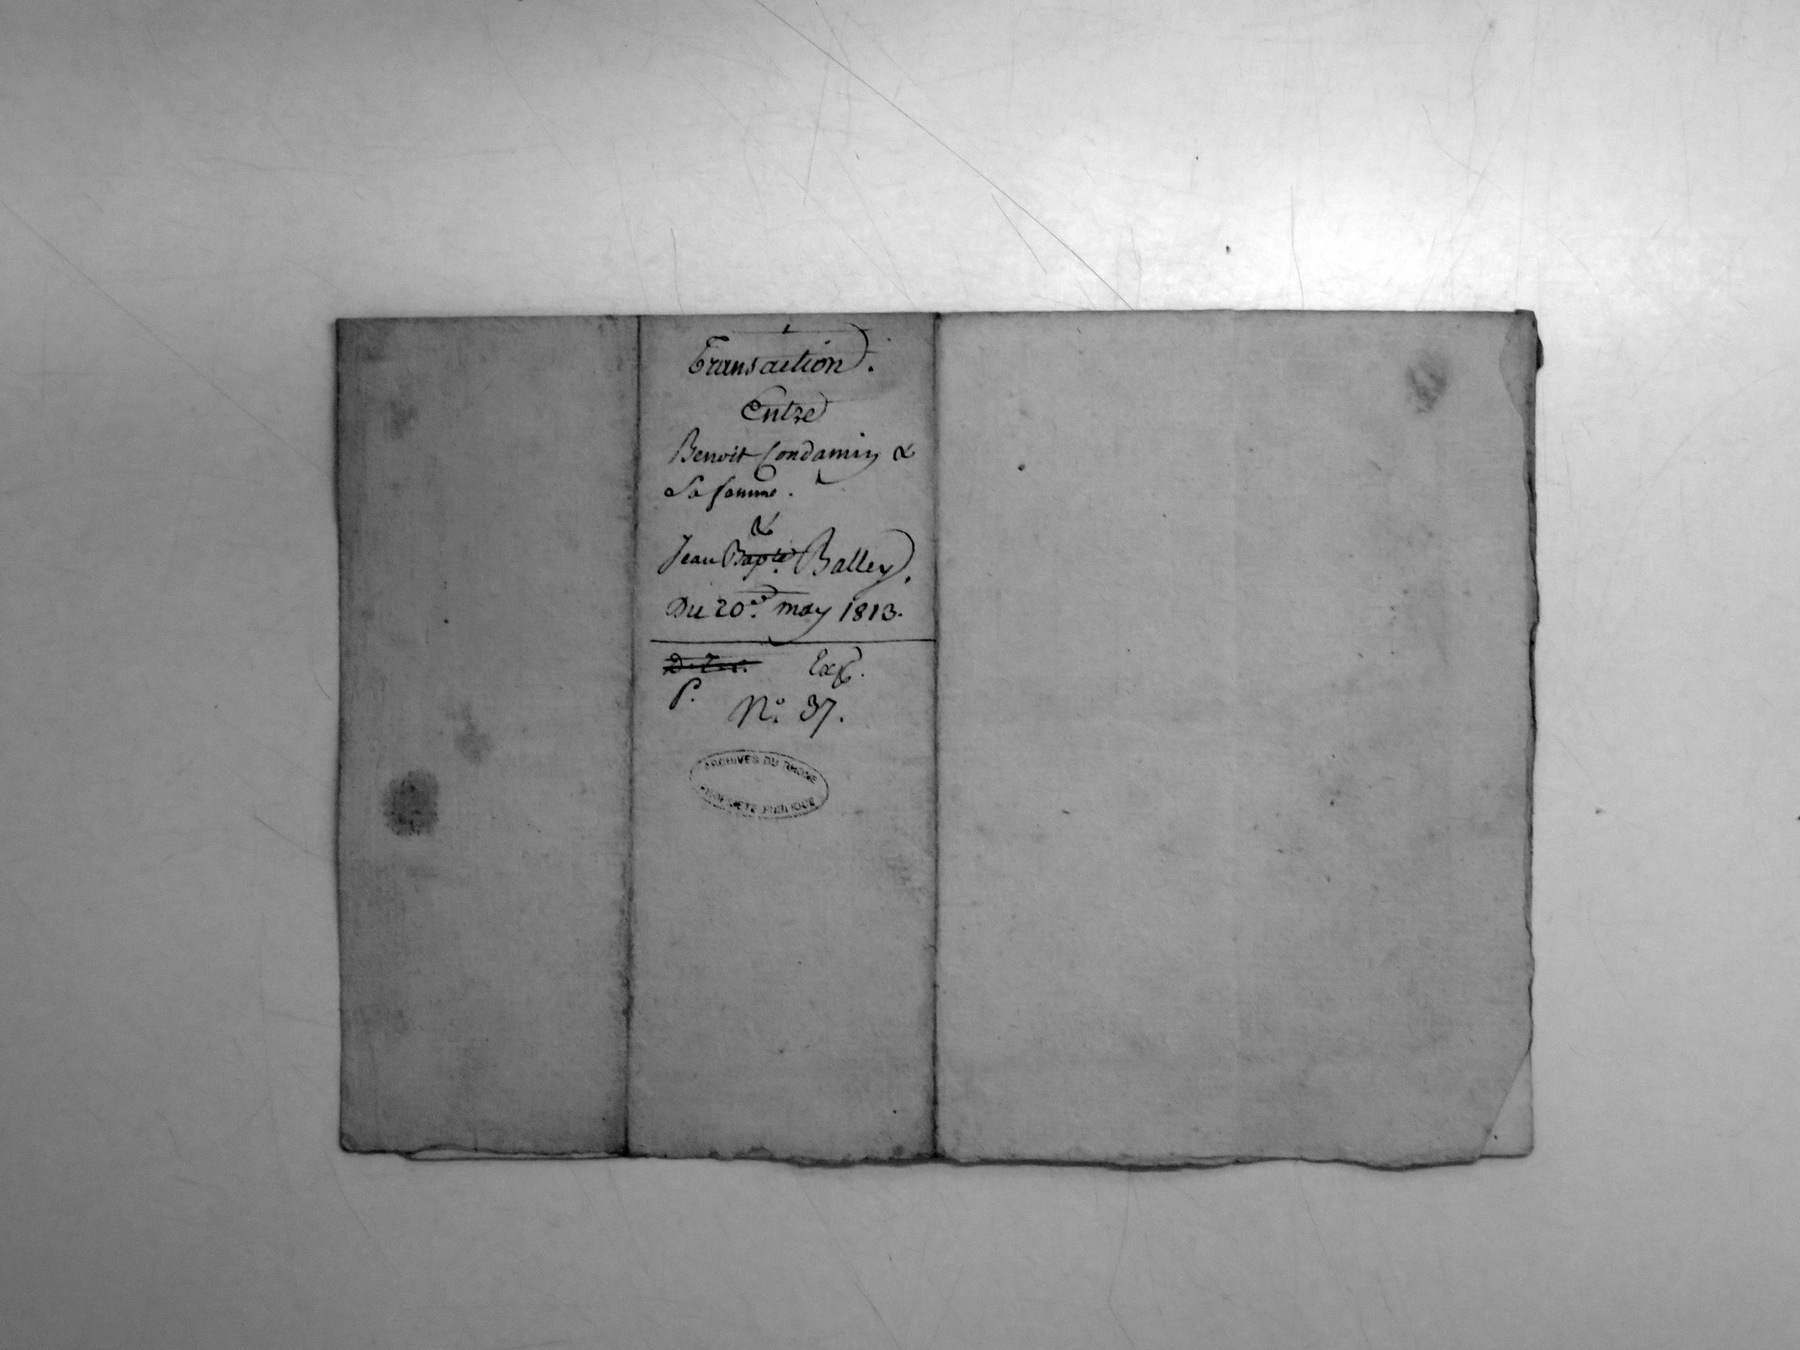 Transaction.
Entre
Benoit Condamin &
Sa femme.
&
Jean Bapte. Balley.
Du 20.e may 1813.
Exp.
P.
N.o 37.
ARCHIVES DU RHONE
PROPRIÉTÉ PUBLIQUE